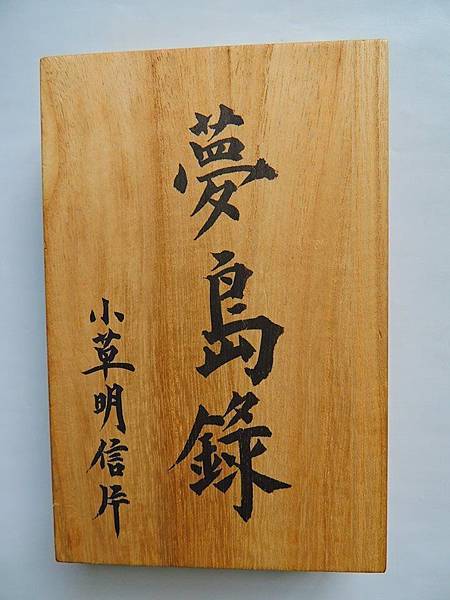 夢島錄
小草明信片